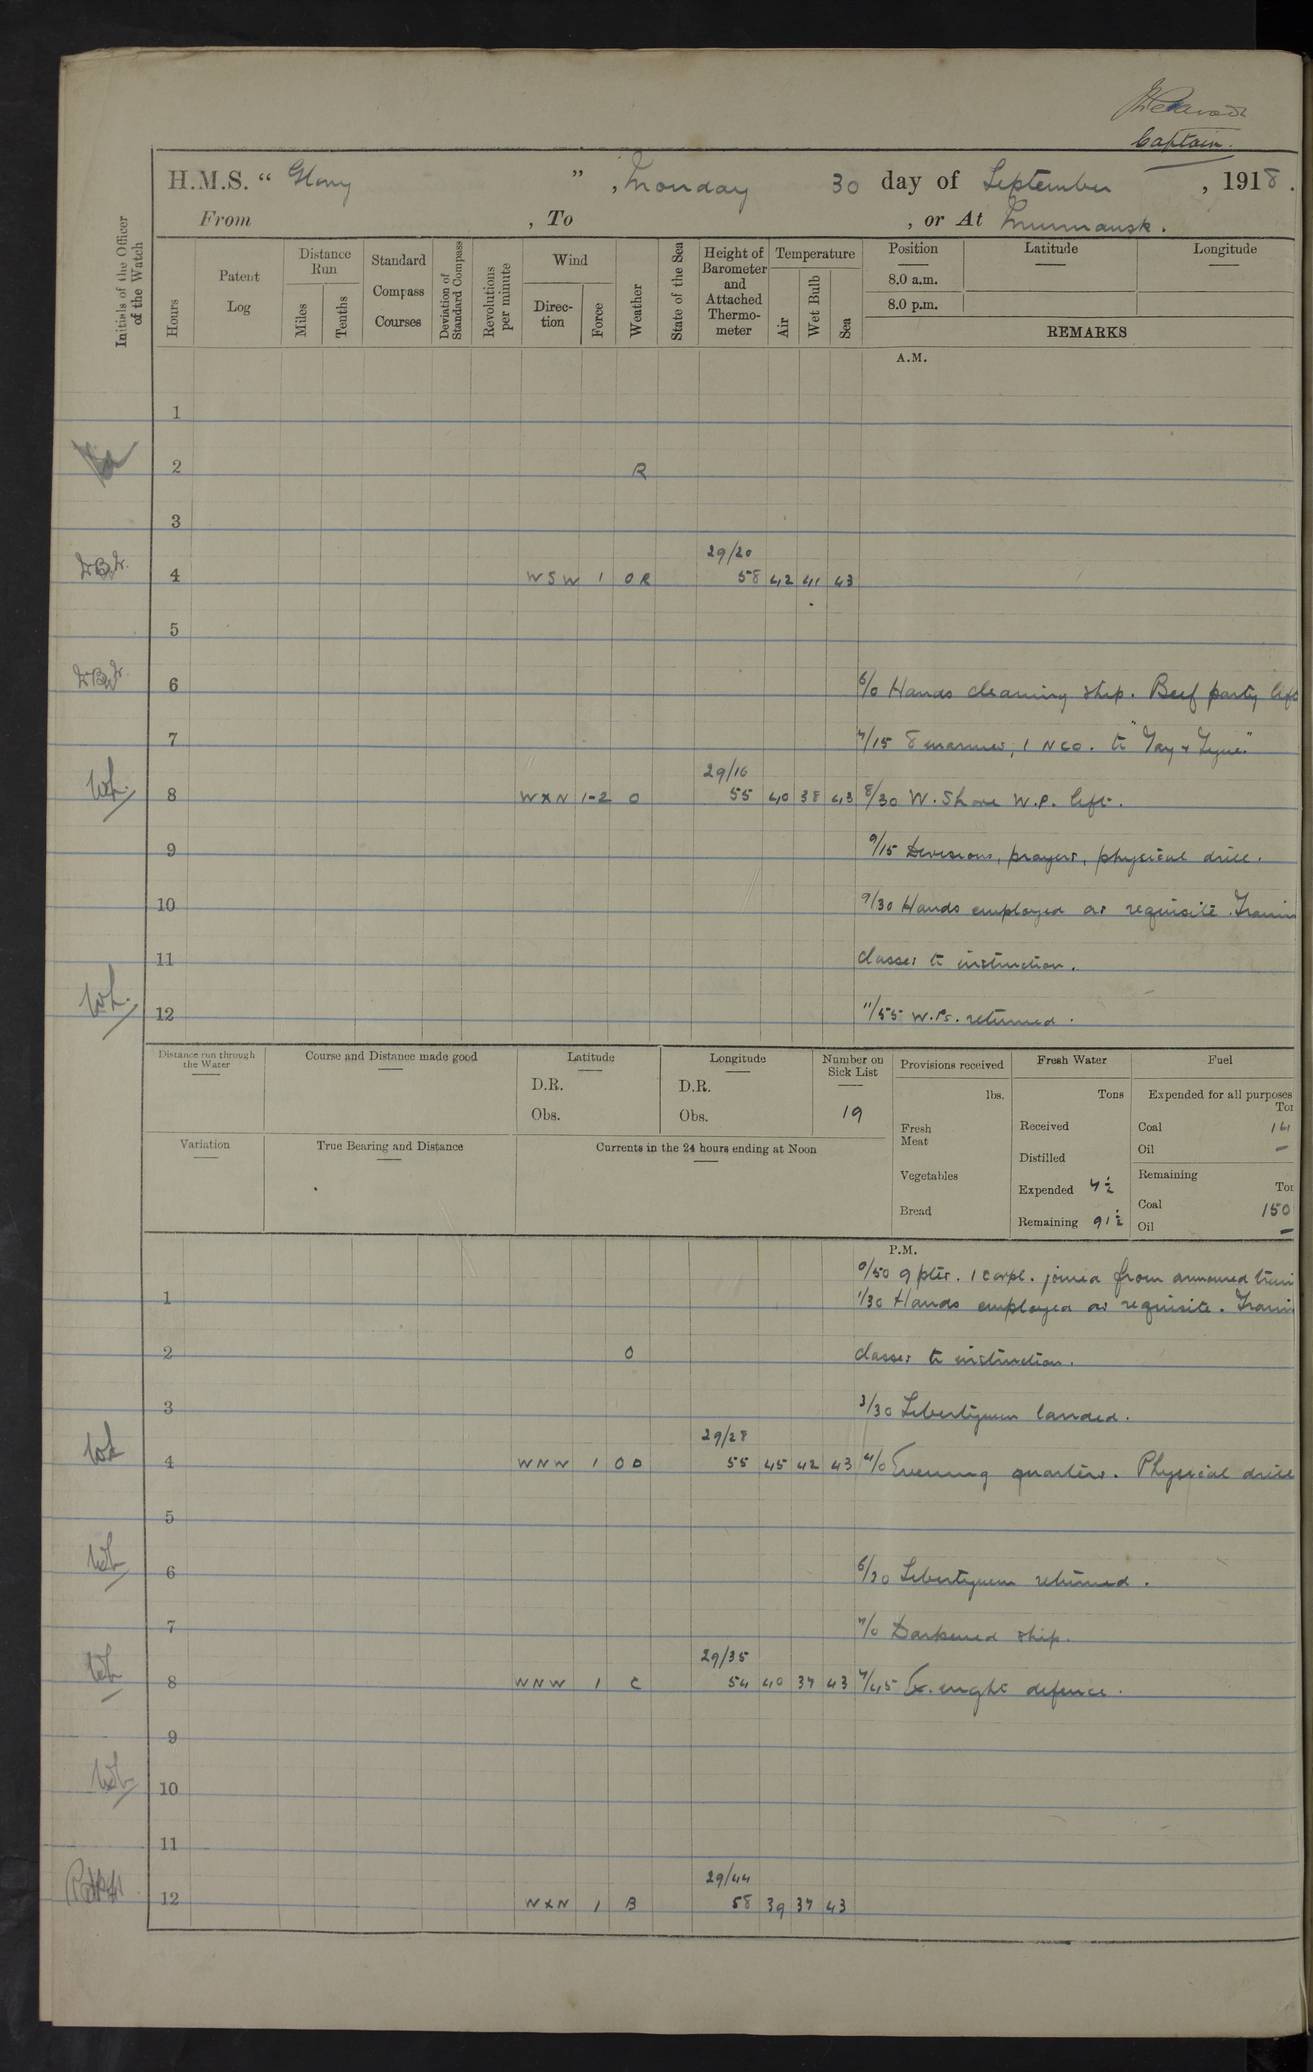 Captain.
H.M.S. " Glory " , Monday 30 day of September , 1918 .
From , To , or At Murmansk .
Initials of the Officer of the Watch
Hours
Patent Log
Distance Run
Miles
Tenths
Standard Compass Courses
Deviation of Standard Compass
Revolutions per minute
Wind
Direc-tion
Force
Weather
State of the Sea
Height of Barometer and Attached Thermo-meter
Temperature
Air
Wet Bulb
Sea
Position Latitude Longitude
8.0 a.m.
8.0 p.m.
REMARKS
A.M.
1
2 R
3
29/20
4 WSW 1 OR 58 42 41 43
5
6 6/0 Hands cleaning ship. Beef party left
7 7/15 8 marines, 1 NCO. to "Tay & Tyne"
29/16
8 WXN 1-2 O 55 40 38 43 8/30 W. Shore W.P. left.
9 9/15 Divisions, prayers, physical drill.
10 9/30 Hands employed as requisite. Trainin
11 classes to instruction.
12 11/55 W.Ps. returned.
Distance run through the Water
Course and Distance made good
Latitude
D.R.
Obs.
Longitude
D.R.
Obs.
Number on Sick List
19
Provisions received
lbs.
Fresh Meat
Vegetables
Bread
Fresh Water
Tons
Received
Distilled
Expended 7½
Remaining 91½
Fuel
Expended for all purposes
Ton
Coal
Oil –
Remaining
Ton
Coal 150
Oil –
Variation
True Bearing and Distance
Currents in the 24 hours ending at Noon
P.M.
0/50 9 ptes. 1 corpl. joined from armoured train
1 1/30 Hands employed as requisite. Trainin
2 O classes to instruction.
3 3/30 Libertymen landed.
29/28
4 WNW 1 OD 55 45 42 43 4/0 Evening quarters. Physical drill
5
6 6/20 Libertymen returned.
7 7/0 Darkened ship.
29/35
8 WNW 1 C 54 40 37 43 7/45 Ex. night defence.
9
10
11
29/44
12 WXN 1 B 58 39 37 43